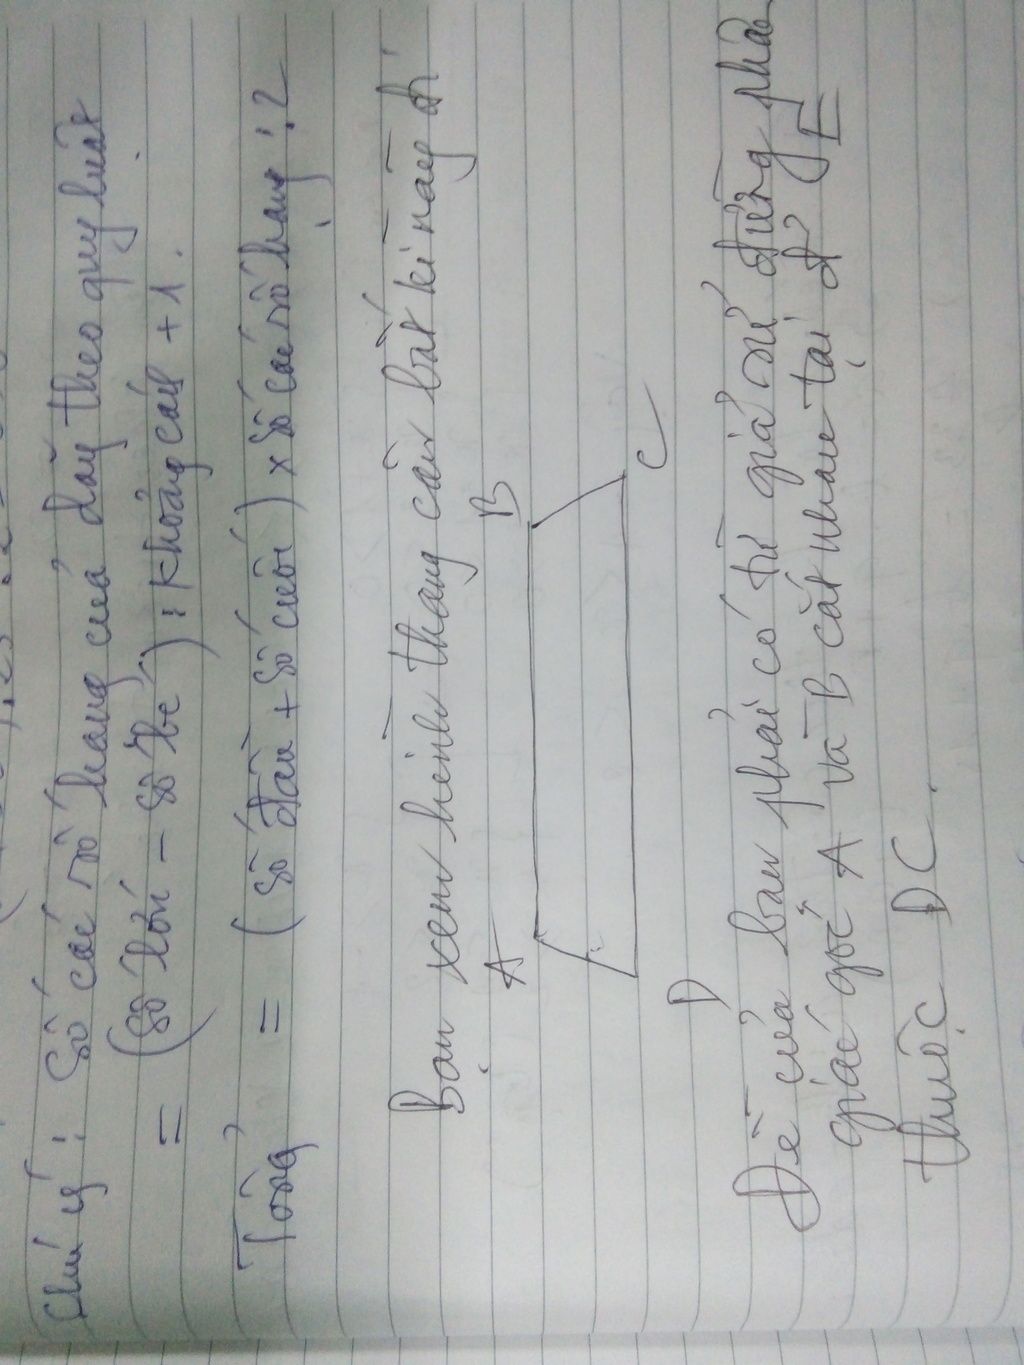 Chú ý : Số các số hạng của dãy theo quy luật
= (Số lớn - số bé) : khoảng cách + 1.
Tổng = (số đầu + số cuối) x số các số hạng : 2
Bạn xem hình thang cân bất kì này đi
A B
D C
Đề của bạn phải có từ giả sử đường phân
giác góc A và B cắt nhau tại ở E
thuộc DC.